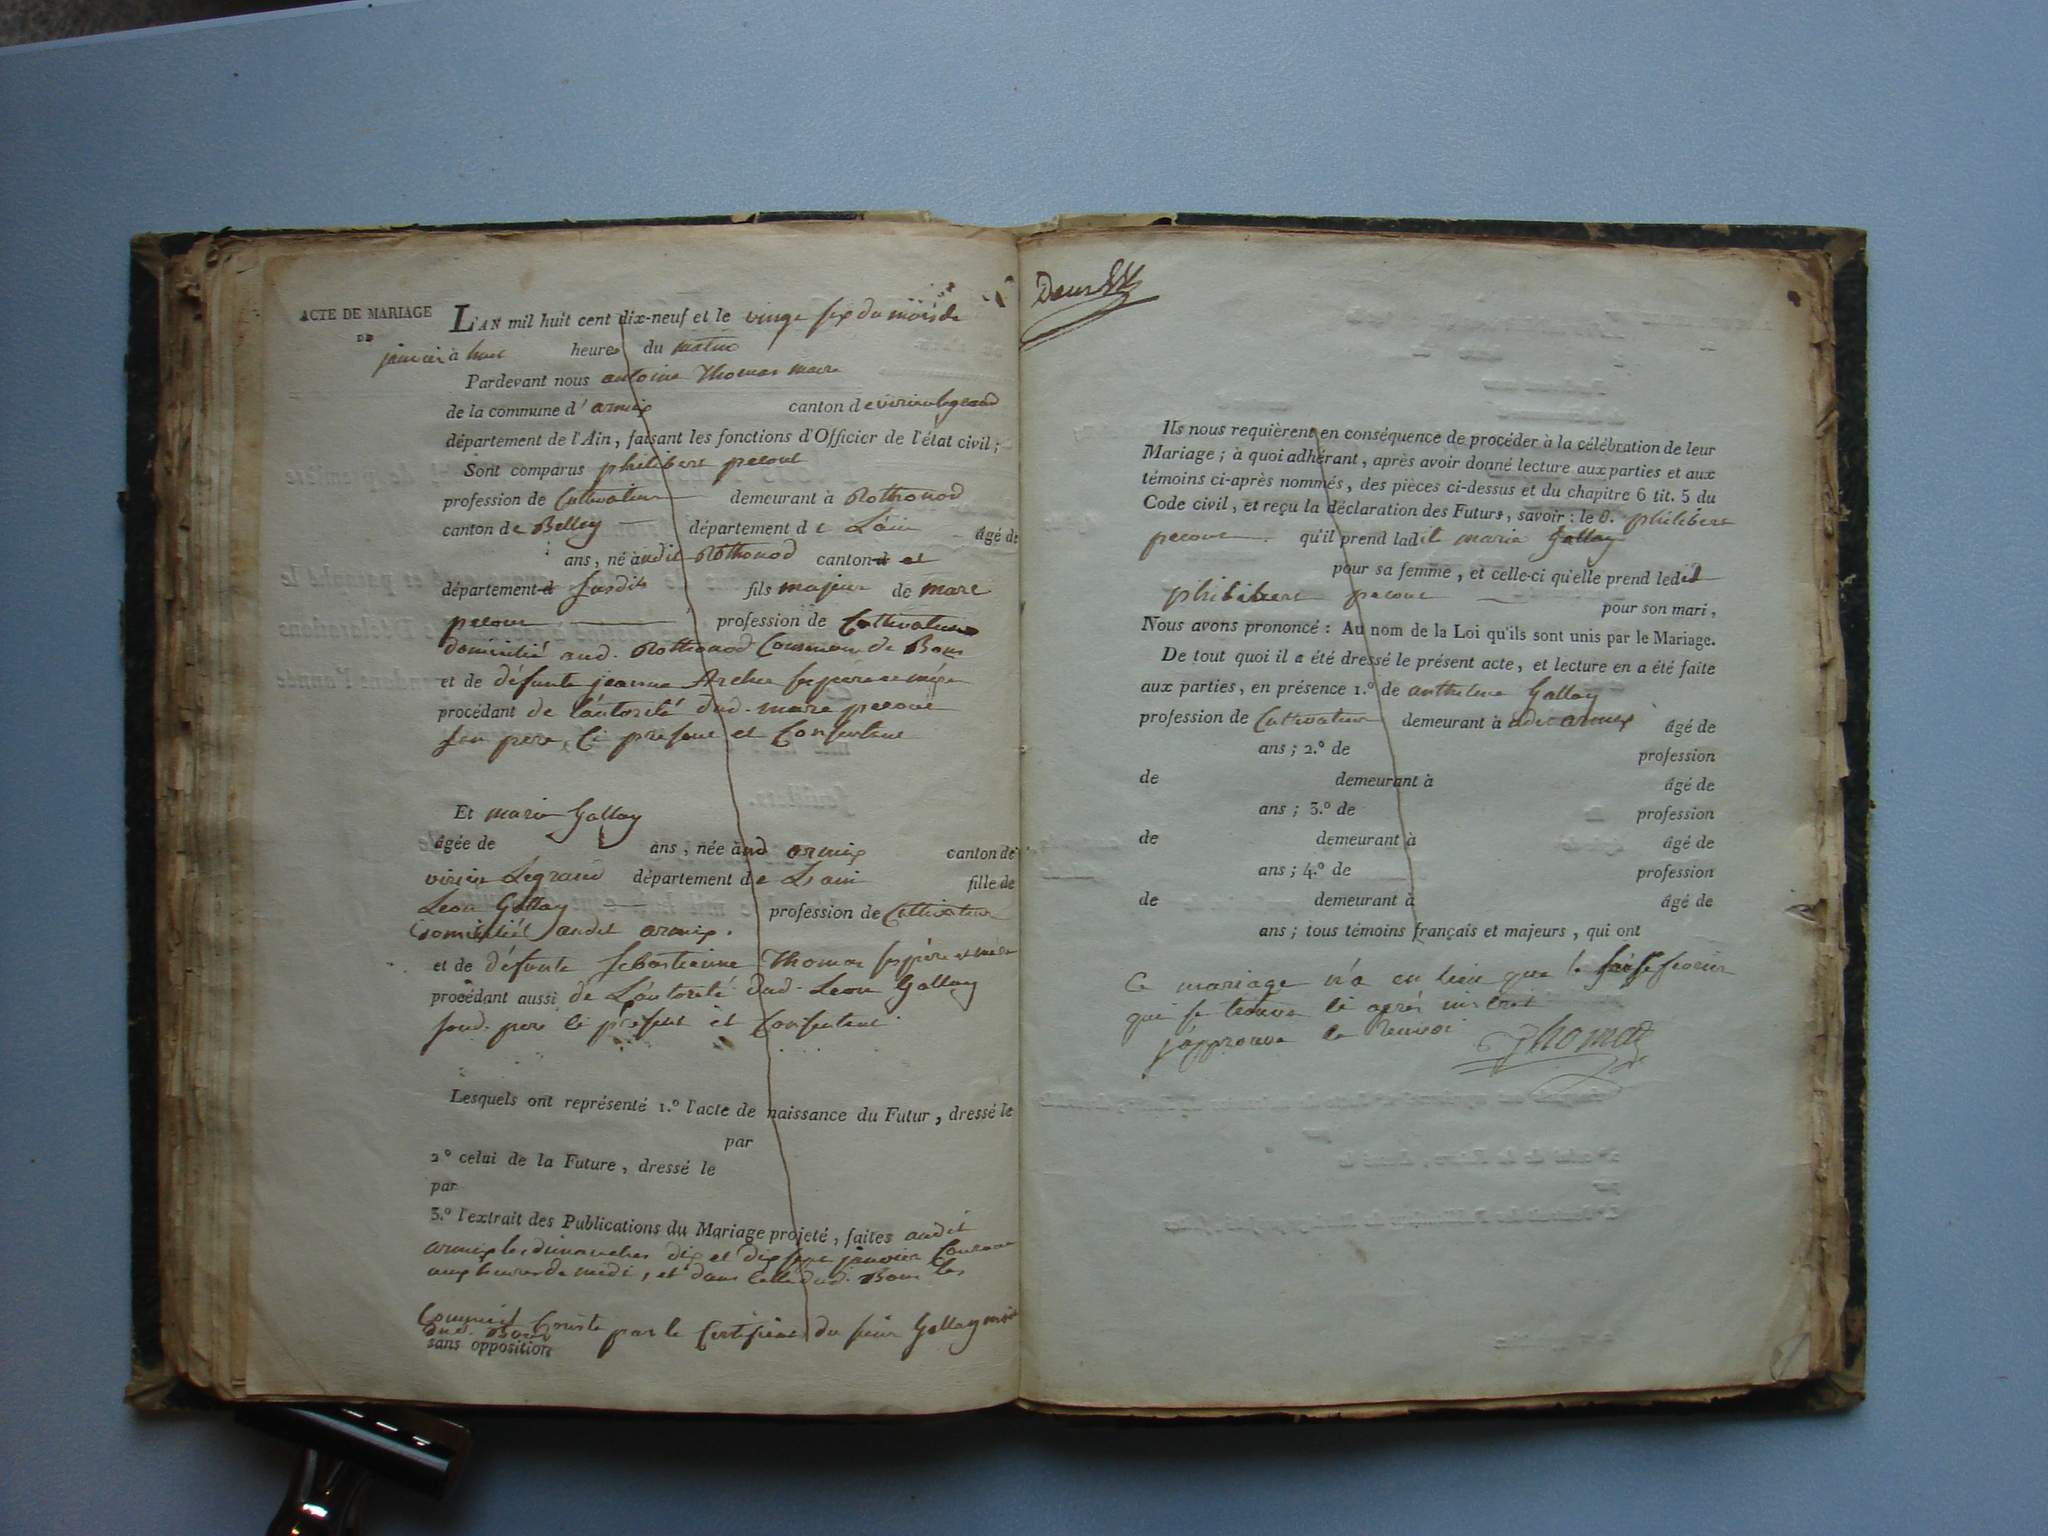 ACTE DE MARIAGE
DE
L'AN mil huit cent dix-neuf et le vingt six du mois de
janvier à huit heures du matin
Pardevant nous antoine Thomas maire
de la commune d'armix canton de virieulegrand
département de l'Ain, faisant les fonctions d'Officier de l'état civil;
Sont comparus philibert pecout
profession de Cultivateur demeurant à Rothonod
canton de Belley département de L'ain âgé de
ans, né audit Rothonod canton et
département susdits fils majeur de marc
pecout profession de Cultivateur
domicilié aud. Rothonod Commune de Bons
et de défunte jeanne ses père et mère
procédant de l'autorité dud. marc pecout
son père, Ci présent et Consentant
Et marie Gallay
âgée de ans, née aud armix canton de
virieu Legrand département de L'ain fille de
Leon Gallay profession de Cultivateur
domicilié audit armix.
et de défunte Sebastienne Thomas ses père et mère
procédant aussi de L'autorité dud. Leon Gallay
sond. père ci présent et Consentant
Lesquels ont représenté 1.º l'acte de naissance du Futur, dressé le
par
2º celui de la Future, dressé le
par
3.º l'extrait des Publications du Mariage projeté, faites audit
armix les dimanches dix et dix sept janvier Courant
aux heures de midi, et dans celle dud. Bons les
Conste par le Certificat du sieur Gallay maire
dud. Bons
sans opposition
Deux
Ils nous requièrent en conséquence de procéder à la célébration de leur
Mariage; à quoi adhérant, après avoir donné lecture aux parties et aux
témoins ci-après nommés, des pièces ci-dessus et du chapitre 6 tit. 5 du
Code civil, et reçu la déclaration des Futurs, savoir: le d. philibert
pecout qu'il prend ladite marie Gallay
pour sa femme, et celle-ci qu'elle prend ledit
philibert pecout pour son mari,
Nous avons prononcé: Au nom de la Loi qu'ils sont unis par le Mariage.
De tout quoi il a été dressé le présent acte, et lecture en a été faite
aux parties, en présence 1.º de anthelme Gallay
profession de Cultivateur demeurant à audit armix âgé de
ans; 2.º de profession
de demeurant à âgé de
ans; 3.º de profession
de demeurant à âgé de
ans; 4.º de profession
de demeurant à âgé de
ans; tous témoins français et majeurs, qui ont
Ce mariage n'a eu lieu que le
qui se trouve ci après inscrit
j'approuve le Renvoi Thomas